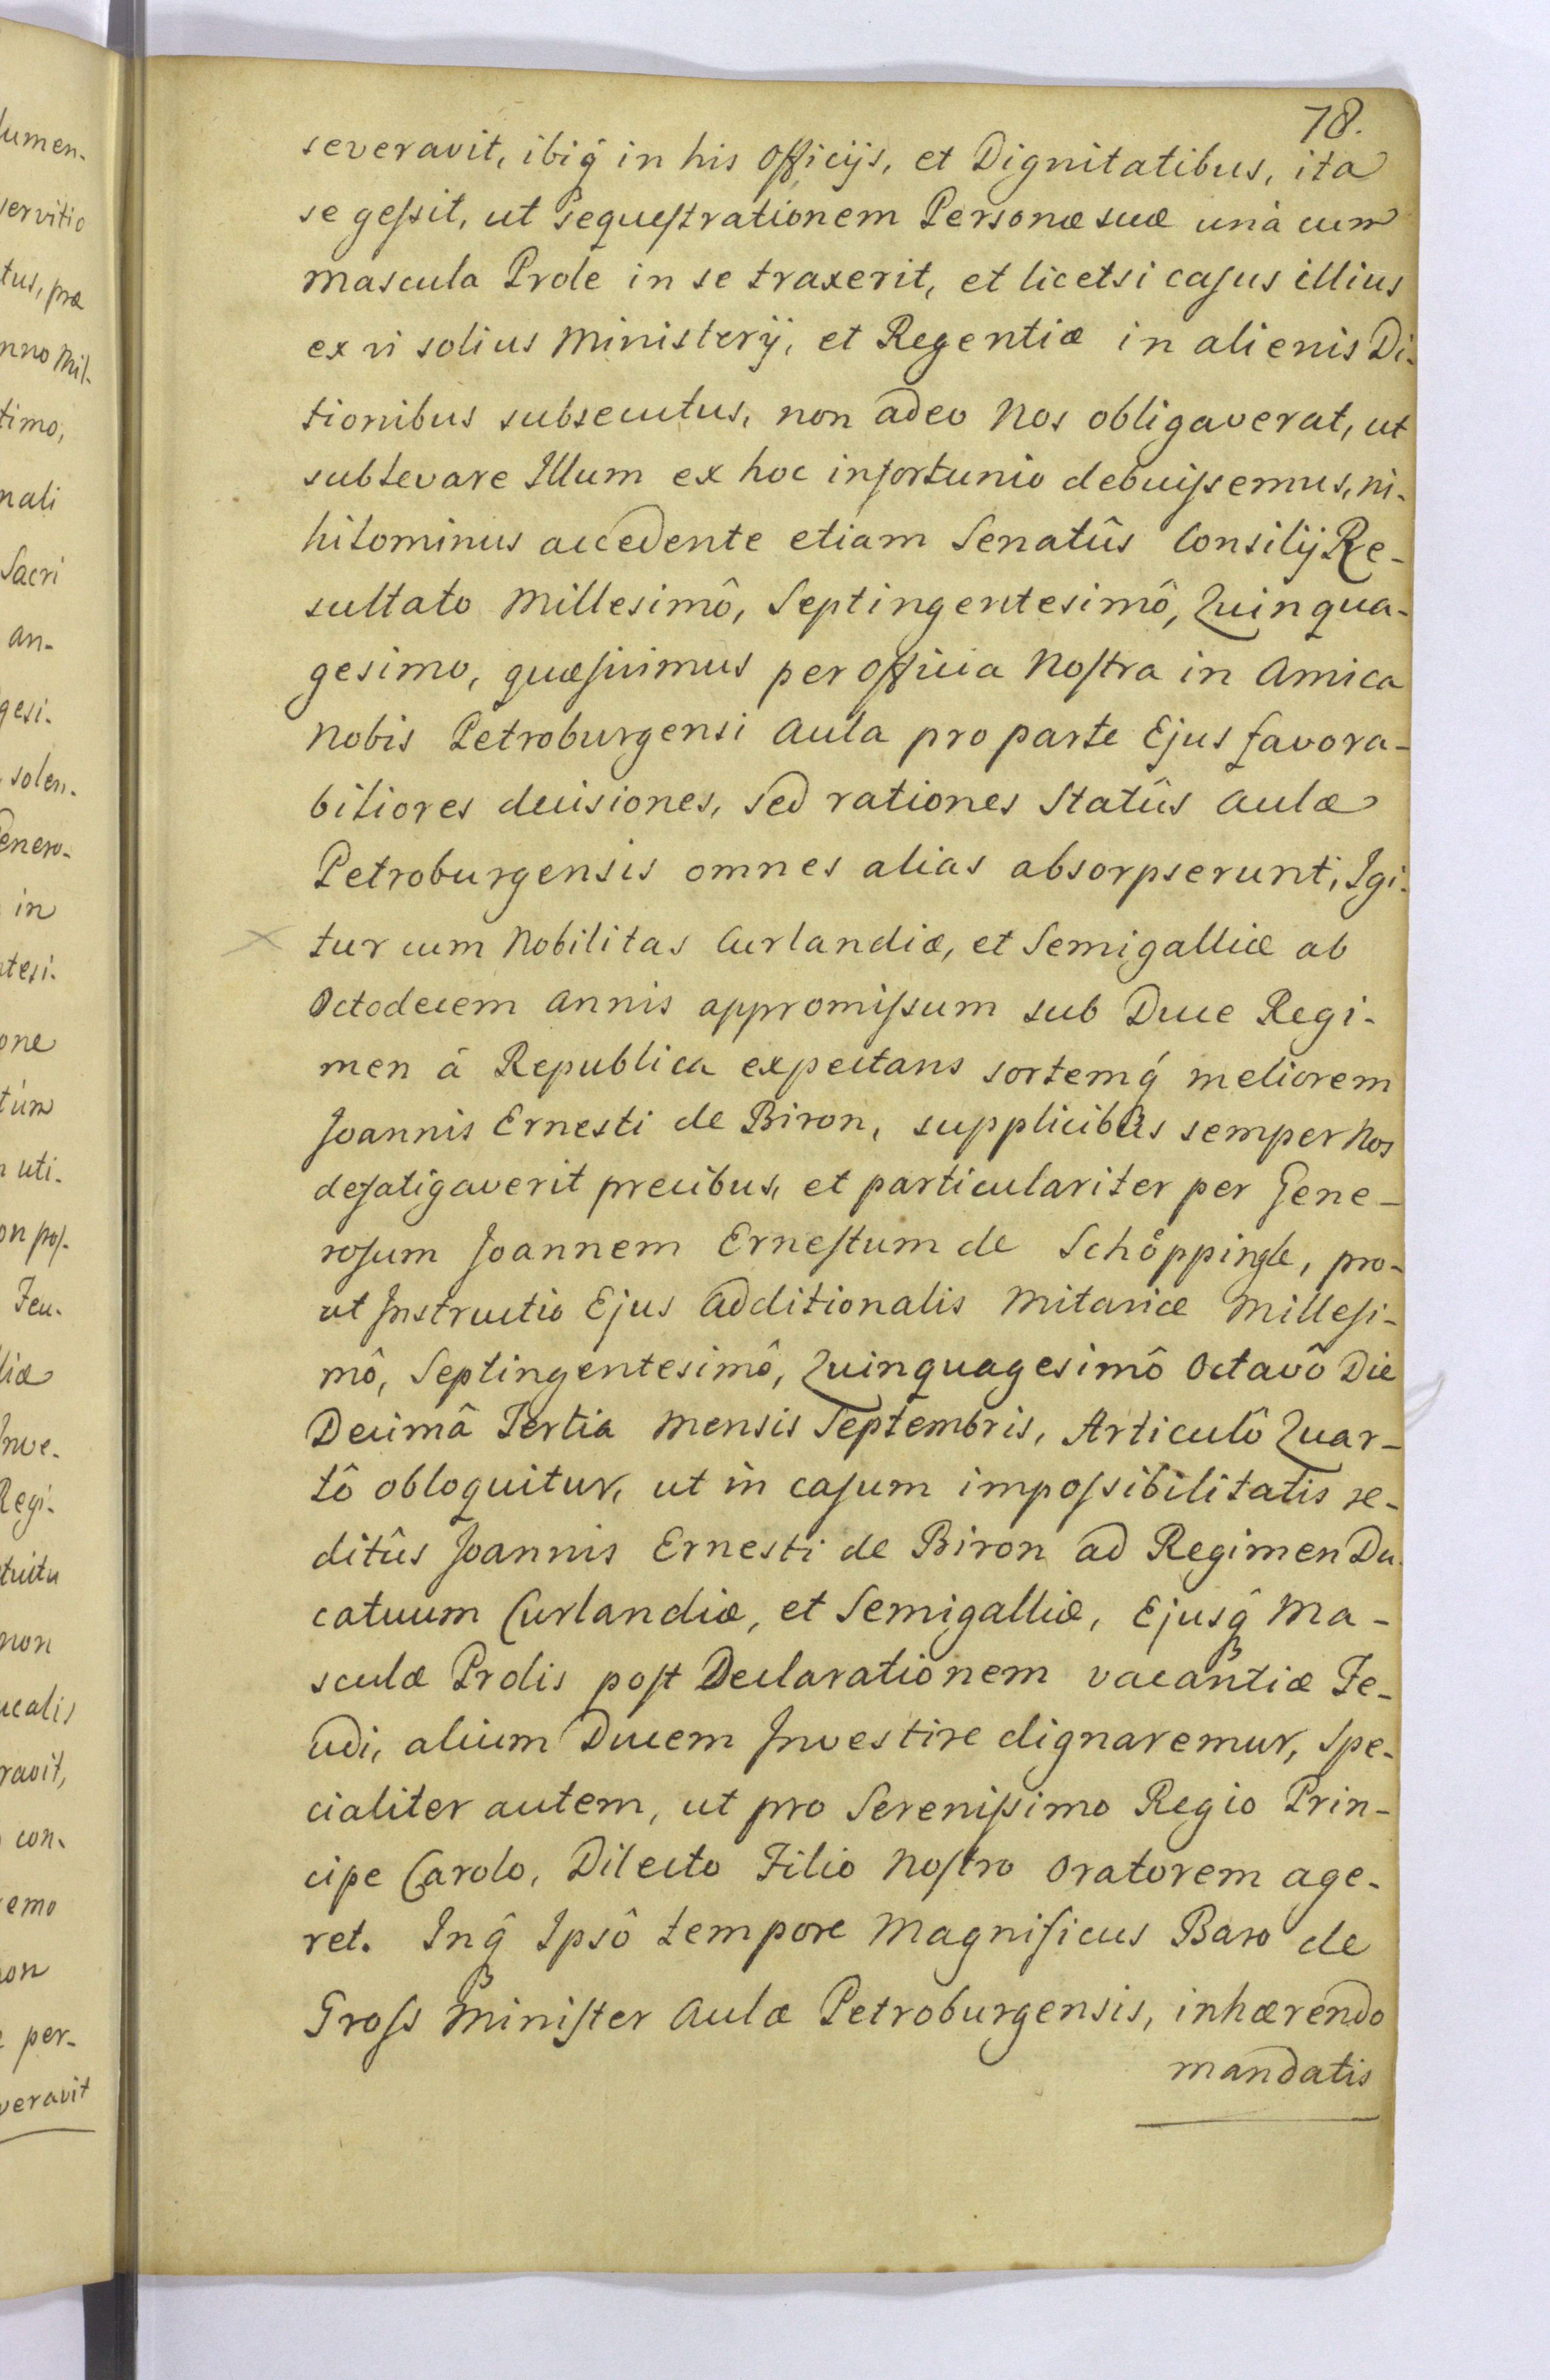 78.
severavit, ibiq́ in his Officijs, et Dignitatibus, ita
se geſsit, ut Sequeſtrationem Personæ suæ unà cum
Mascula Prole in se traxerit, et licetsi caſus illius
ex vi solius Ministerij, et Regentiæ in alienis Di-
tionibus subsecutus, non adeo Nos obligaverat, ut
sublevare Illum ex hoc infortunio debuiſsemus, ni-
hilominus accedente etiam Senatûs Consilij Re-
sultato Millesimô, Septingentesimô, Quinqua-
gesimo, quæſivimus per Officia Noſtra in Amica
Nobis Petroburgensi Aula pro parte Ejus favora-
biliores decisiones, sed rationes Statûs Aulæ
Petroburgensis omnes alias absorpserunt, Igi-
tur cum Nobilitas Curlandiæ, et Semigalliæ ab
Octodecem Annis appromiſsum sub Duce Regi-
men á Republica expectans sortemq́ meliorem
Joannis Ernesti de Biron, supplicibus semper Nos
defatigaverit precibus, et particulariter per Gene-
roſum Joannem Erneſtum de Schöppingk, pro-
ut Instructio Ejus Additionalis Mitaviæ Milleſi-
mô, Septingentesimô, Quinquagesimô Octavô Die
Decimâ Tertia Mensis Septembris, Articulô Quar-
tô obloquitur, ut in caſum impoſsibilitatis re-
ditûs Joannis Ernesti de Biron ad Regimen Du-
catuum Curlandiæ, et Semigalliæ, Ejusq̂ Ma-
sculæ Prolis poſt Declarationem vacantiæ Fe-
udi, alium Ducem Investire dignaremur, spe-
cialiter autem, ut pro Sereniſsimo Regio Prin-
cipe Carolo, Dilecto Filio Noſtro Oratorem age-
ret. Inq̂ Ipsô tempore Magnificus Baro de
Groſs Miniſter Aulæ Petroburgensis, inhærendo
mandatis